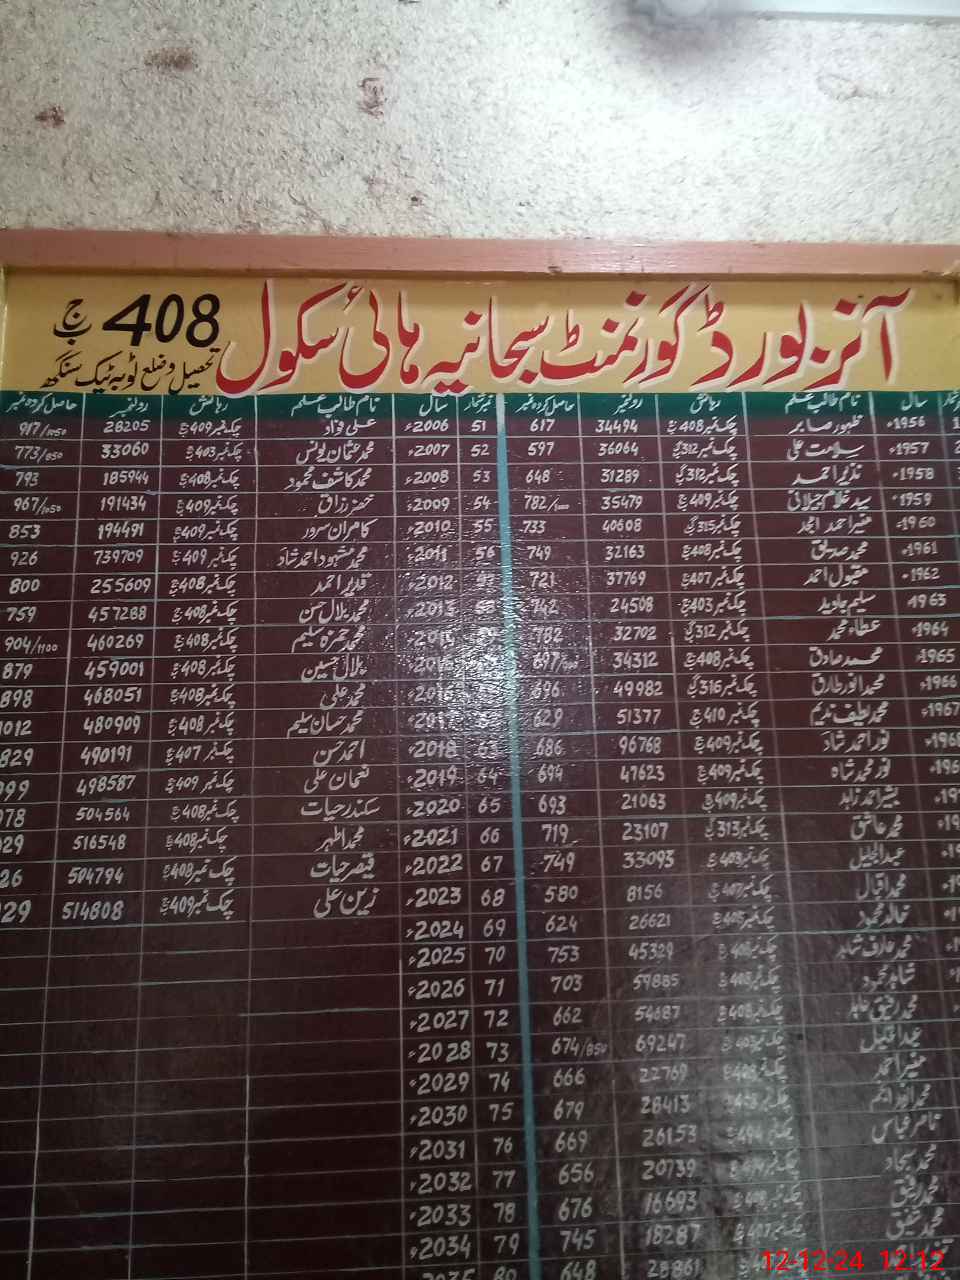 آنر بورڈ گورنمنٹ سبحانیہ ہائی سکول 408 ج ب
تحصیل و ضلع ٹوبہ ٹیک سنگھ
سال نام طالب علم رہائش رولنمبر حاصل کردہ نمبر نمبر شمار سال نام طالب علم رہائش رولنمبر حاصل کردہ نمبر
1956ء ظہور صابر چک نمبر 408 ج ب 34494 617 51 2006ء علی فواد چک نمبر 409 ج ب 28205 917/1050
1957ء سلامت علی چک نمبر 312 گ ب 36064 597 52 2007ء محمد عثمان یونس چک نمبر 403 ج ب 33060 773/850
1958ء نذیر احمد چک نمبر 312 گ ب 31289 648 53 2008ء محمد کاشف محمود چک نمبر 408 ج ب 185944 793
1959ء سید غلام جیلانی چک نمبر 409 ج ب 35479 782/1000 54 2009ء خضر رزاق چک نمبر 409 ج ب 191434 967/1050
1960ء منیر احمد امجد چک نمبر 315 گ ب 40608 733 55 2010ء کامران سرور چک نمبر 409 ج ب 194491 853
1961ء محمد صدیق چک نمبر 408 ج ب 32163 749 56 2011ء محمد مشہود احمد شاد چک نمبر 409 ج ب 739709 926
1962ء مقبول احمد چک نمبر 407 ج ب 37769 721 2012ء قدیر احمد چک نمبر 408 ج ب 255609 800
1963ء سلیم جاوید چک نمبر 403 ج ب 24508 742 2013ء محمد بلال حسن چک نمبر 408 ج ب 457288 759
1964ء عطاء محمد چک نمبر 312 گ ب 32702 782 محمد حمزہ سلیم چک نمبر 408 ج ب 460269 904/1100
1965ء محمد صادق چک نمبر 408 ج ب 34312 697 بلال حسین چک نمبر 408 ج ب 459001 879
1966ء محمد انور طارق چک نمبر 316 گ ب 49982 696 محمد علی چک نمبر 408 ج ب 468051 898
1967ء محمد لطیف ندیم چک نمبر 410 ج ب 51377 629 2017ء محمد حسان سلیم چک نمبر 408 ج ب 480909 1012
نور احمد شاد چک نمبر 409 ج ب 96768 686 63 2018ء احمد حسن چک نمبر 407 ج ب 490191 829
نور محمد شاہ چک نمبر 409 ج ب 47623 694 64 2019ء نعمان علی چک نمبر 409 ج ب 498587
بشیر احمد زاہد چک نمبر 409 ج ب 21063 693 65 2020ء سکندر حیات چک نمبر 408 ج ب 504564
محمد عاشق چک نمبر 313 ج ب 23107 719 66 2021ء محمد اطہر چک نمبر 408 ج ب 516548
عبدالجلیل چک نمبر 403 ج ب 33093 749 67 2022ء قیصر حیات چک نمبر 408 ج ب 504794
محمد اقبال چک نمبر 407 ج ب 8156 580 68 2023ء زین علی چک نمبر 409 ج ب 514808
خالد محمود چک نمبر 26621 624 69 2024ء
محمد عارف شاہد چک نمبر 45329 753 70 2025ء
شاہد محمود چک نمبر 59885 703 71 2026ء
محمد رفیق چک نمبر 54687 662 72 2027ء
چک نمبر 69247 674/850 73 2028ء
منیر احمد چک نمبر 22769 666 74 2029ء
محمد چک نمبر 28413 679 75 2030ء
ناصر عباس چک نمبر 26153 669 76 2031ء
محمد سجاد چک نمبر 20739 656 77 2032ء
محمد رفیق چک نمبر 16693 676 78 2033ء
محمد شفیق چک نمبر 18287 745 79 2034ء
28861 648 80 2035
12-12-24 12:12